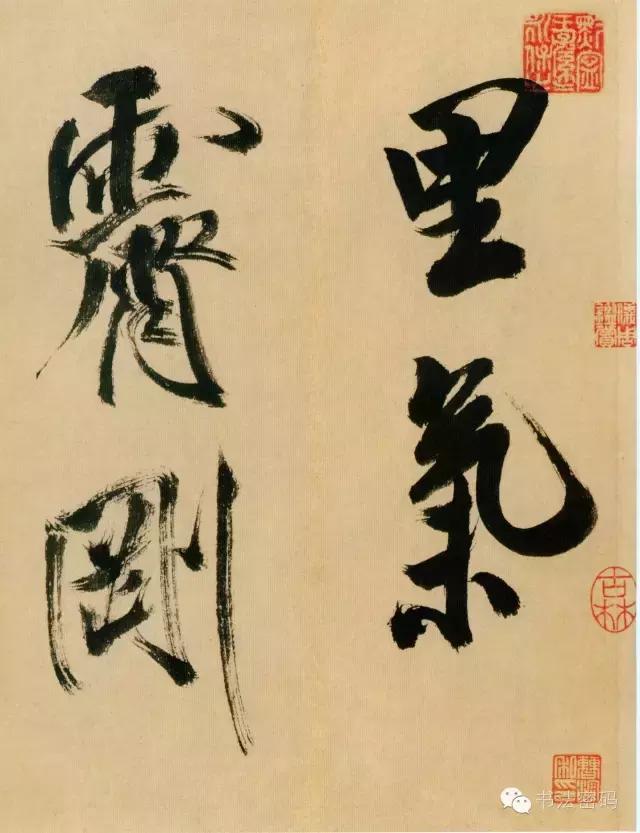 里氣
霽剛
古林
书法密码